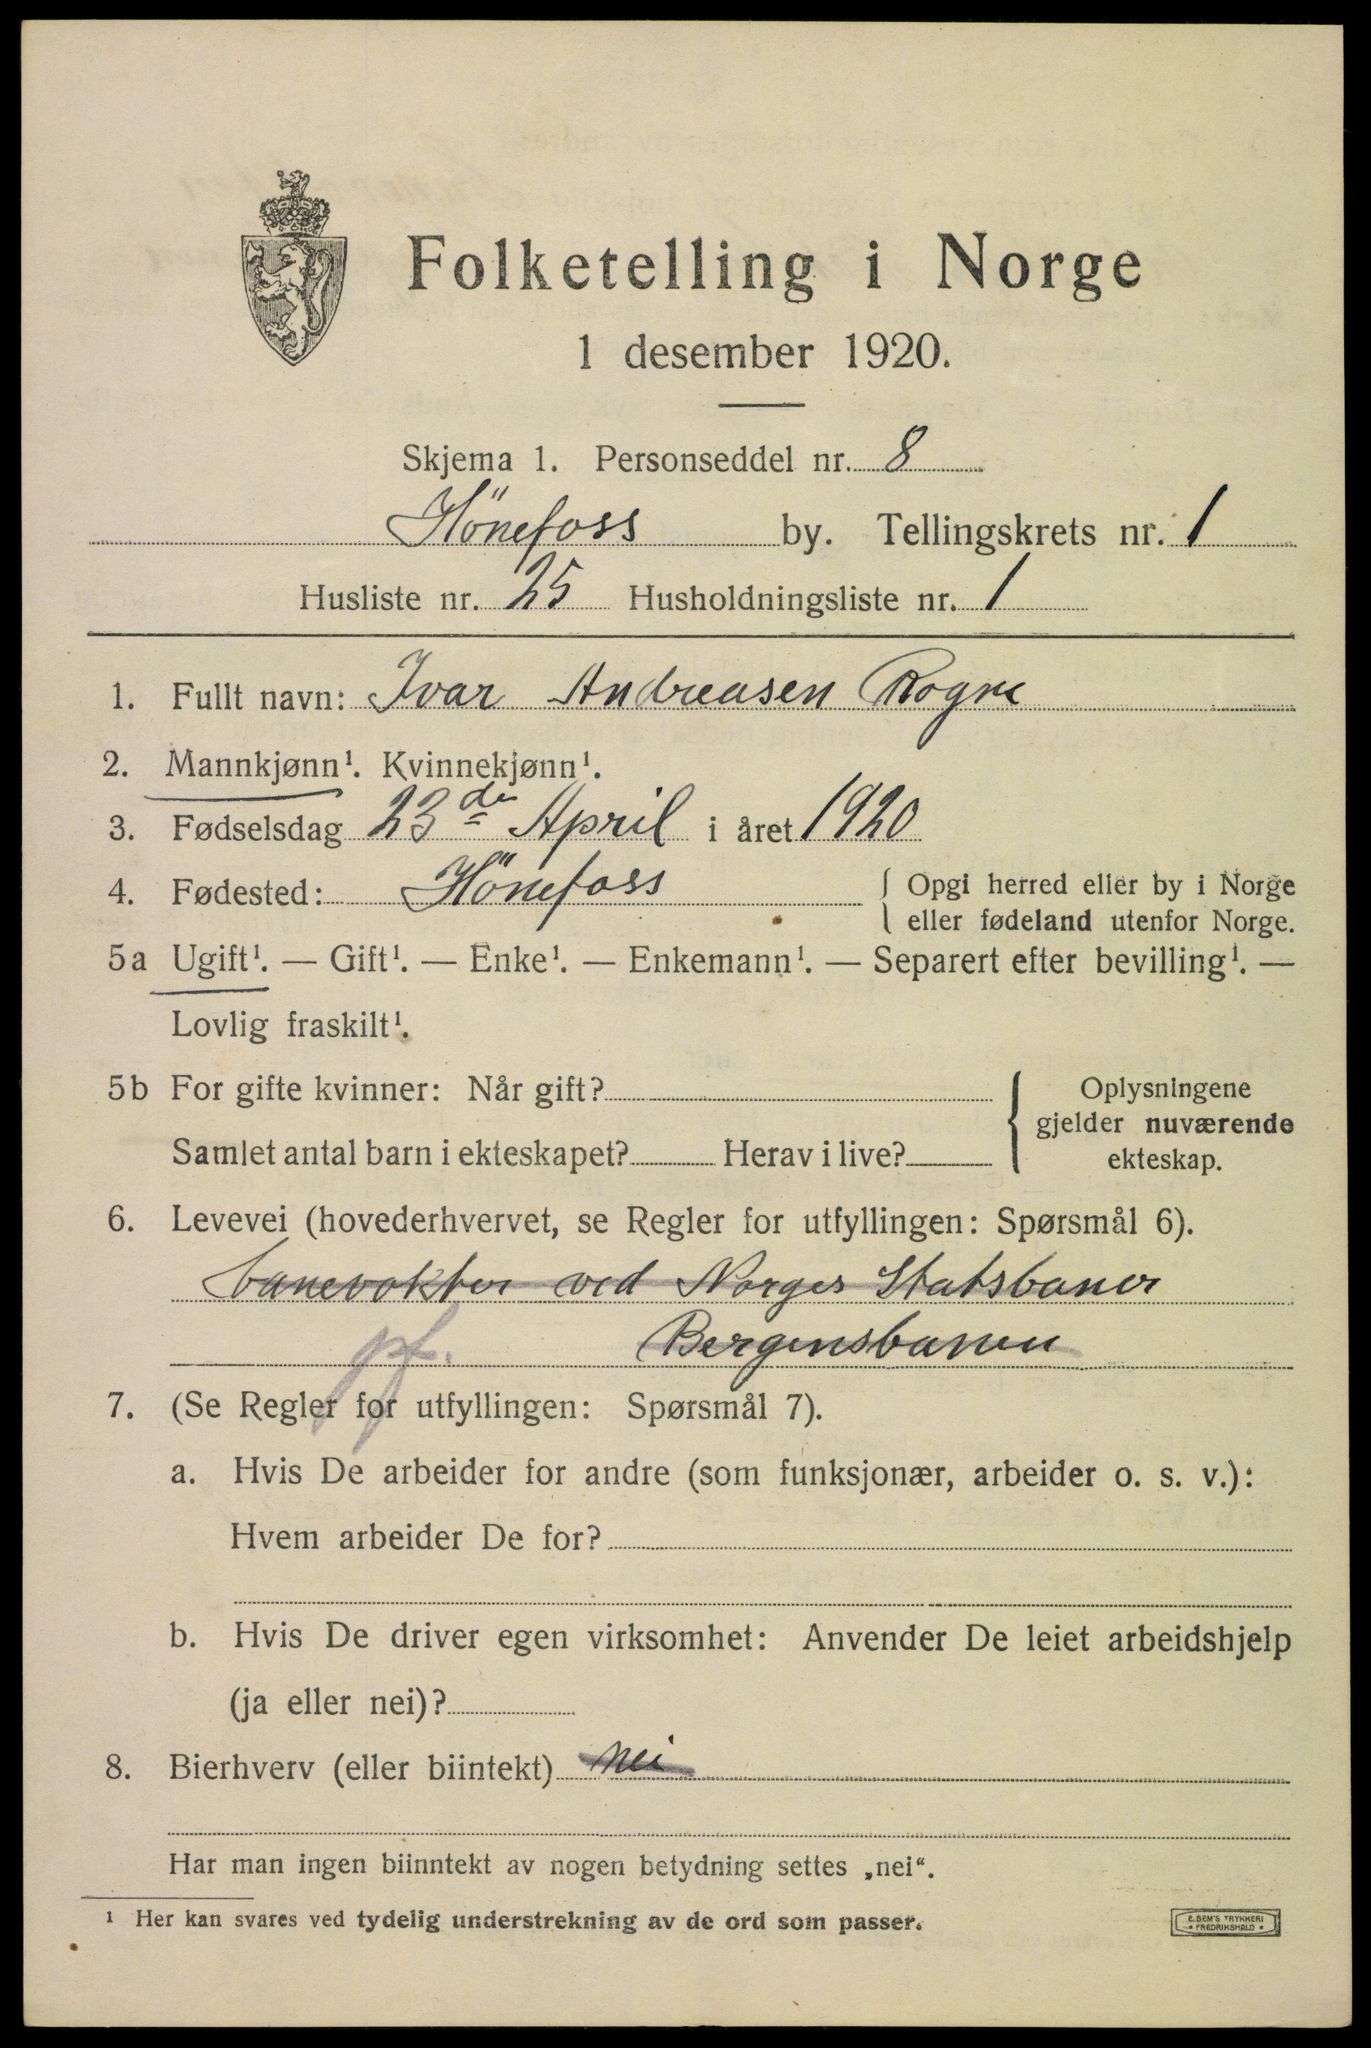 Folketelling i Norge
1 desember 1920.
Skjema 1. Personseddel nr. 8
Hönefoss by. Tellingskrets nr. 1
Husliste nr. 25 Husholdningsliste nr. 1
1. Fullt navn: Ivar Andreasen Rogne
2. Mannkjønn¹. Kvinnekjønn¹.
3. Fødselsdag 23de April i året 1920
4. Fødested: Hönefoss { Opgi herred eller by i Norge
eller fødeland utenfor Norge.
5a Ugift¹. — Gift¹. — Enke¹. — Enkemann¹. — Separert efter bevilling¹. —
Lovlig fraskilt¹.
5b For gifte kvinner: Når gift?
Samlet antal barn i ekteskapet? Herav i live?
{ Oplysningene
gjelder nuværende
ekteskap.
6. Levevei (hovederhvervet, se Regler for utfyllingen: Spørsmål 6).
banevokter ved Norges Statsbaner
pf. Bergensbanen
7. (Se Regler for utfyllingen: Spørsmål 7).
a. Hvis De arbeider for andre (som funksjonær, arbeider o. s. v.):
Hvem arbeider De for?
b. Hvis De driver egen virksomhet: Anvender De leiet arbeidshjelp
(ja eller nei)?
8. Bierhverv (eller biintekt) nei
Har man ingen biinntekt av nogen betydning settes „nei“.
¹ Her kan svares ved tydelig understrekning av de ord som passer.
E. SEM'S TRYKKERI
• FREDRIKSHALD •